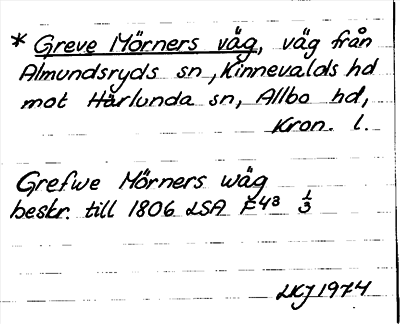 * Greve Mörners väg, väg från
Almundsryds sn, Kinnevalds hd
mot Härlunda sn, Allbo hd,
Kron. l.
Grefwe Mörners wäg
beskr. till 1806 LSA F48 1/3
LKJ 1974